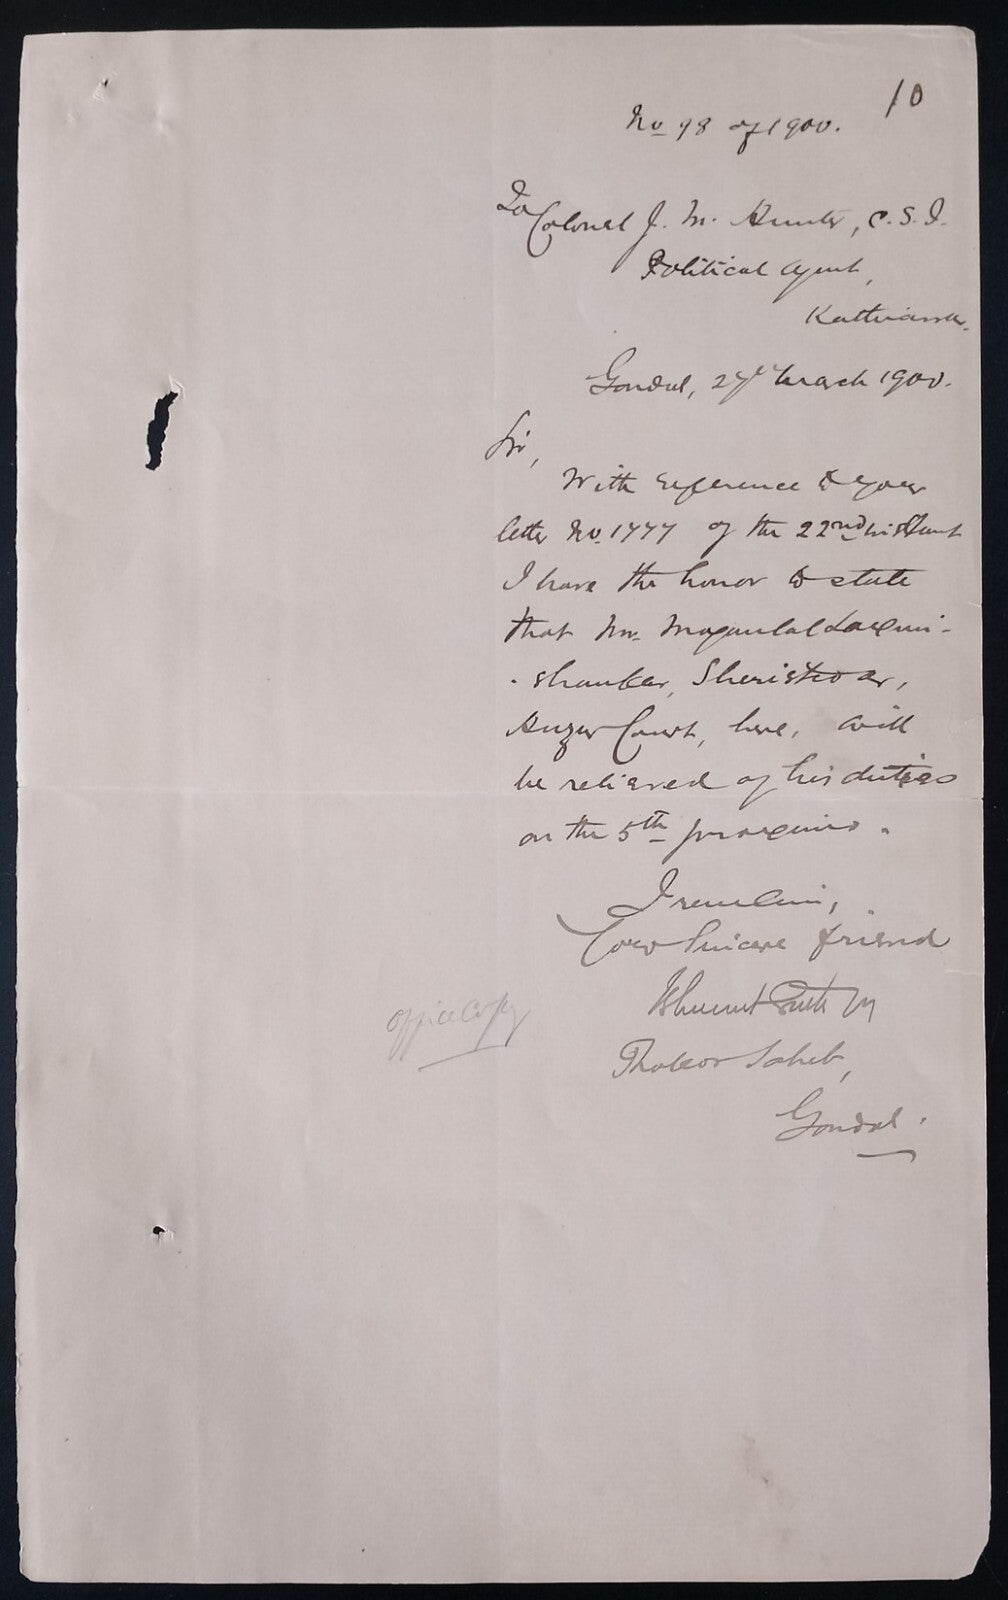 10
No 98 of 1900.
To Colonel J. M. Hunter, C.S.I.
Political Agent,
Kathiawar.
Gondal, 27th March 1900.
Sir,
With reference to your
letter No. 1777 of the 22nd instant
I have the honor to state
that Mr. Maganlal Laxmi-
-shanker, Sheristedar,
Huzur Court, here, will
be relieved of his duties
on the 5th proximo.
I remain,
Your Sincere friend
Thakor Saheb,
office Copy
Gondal.